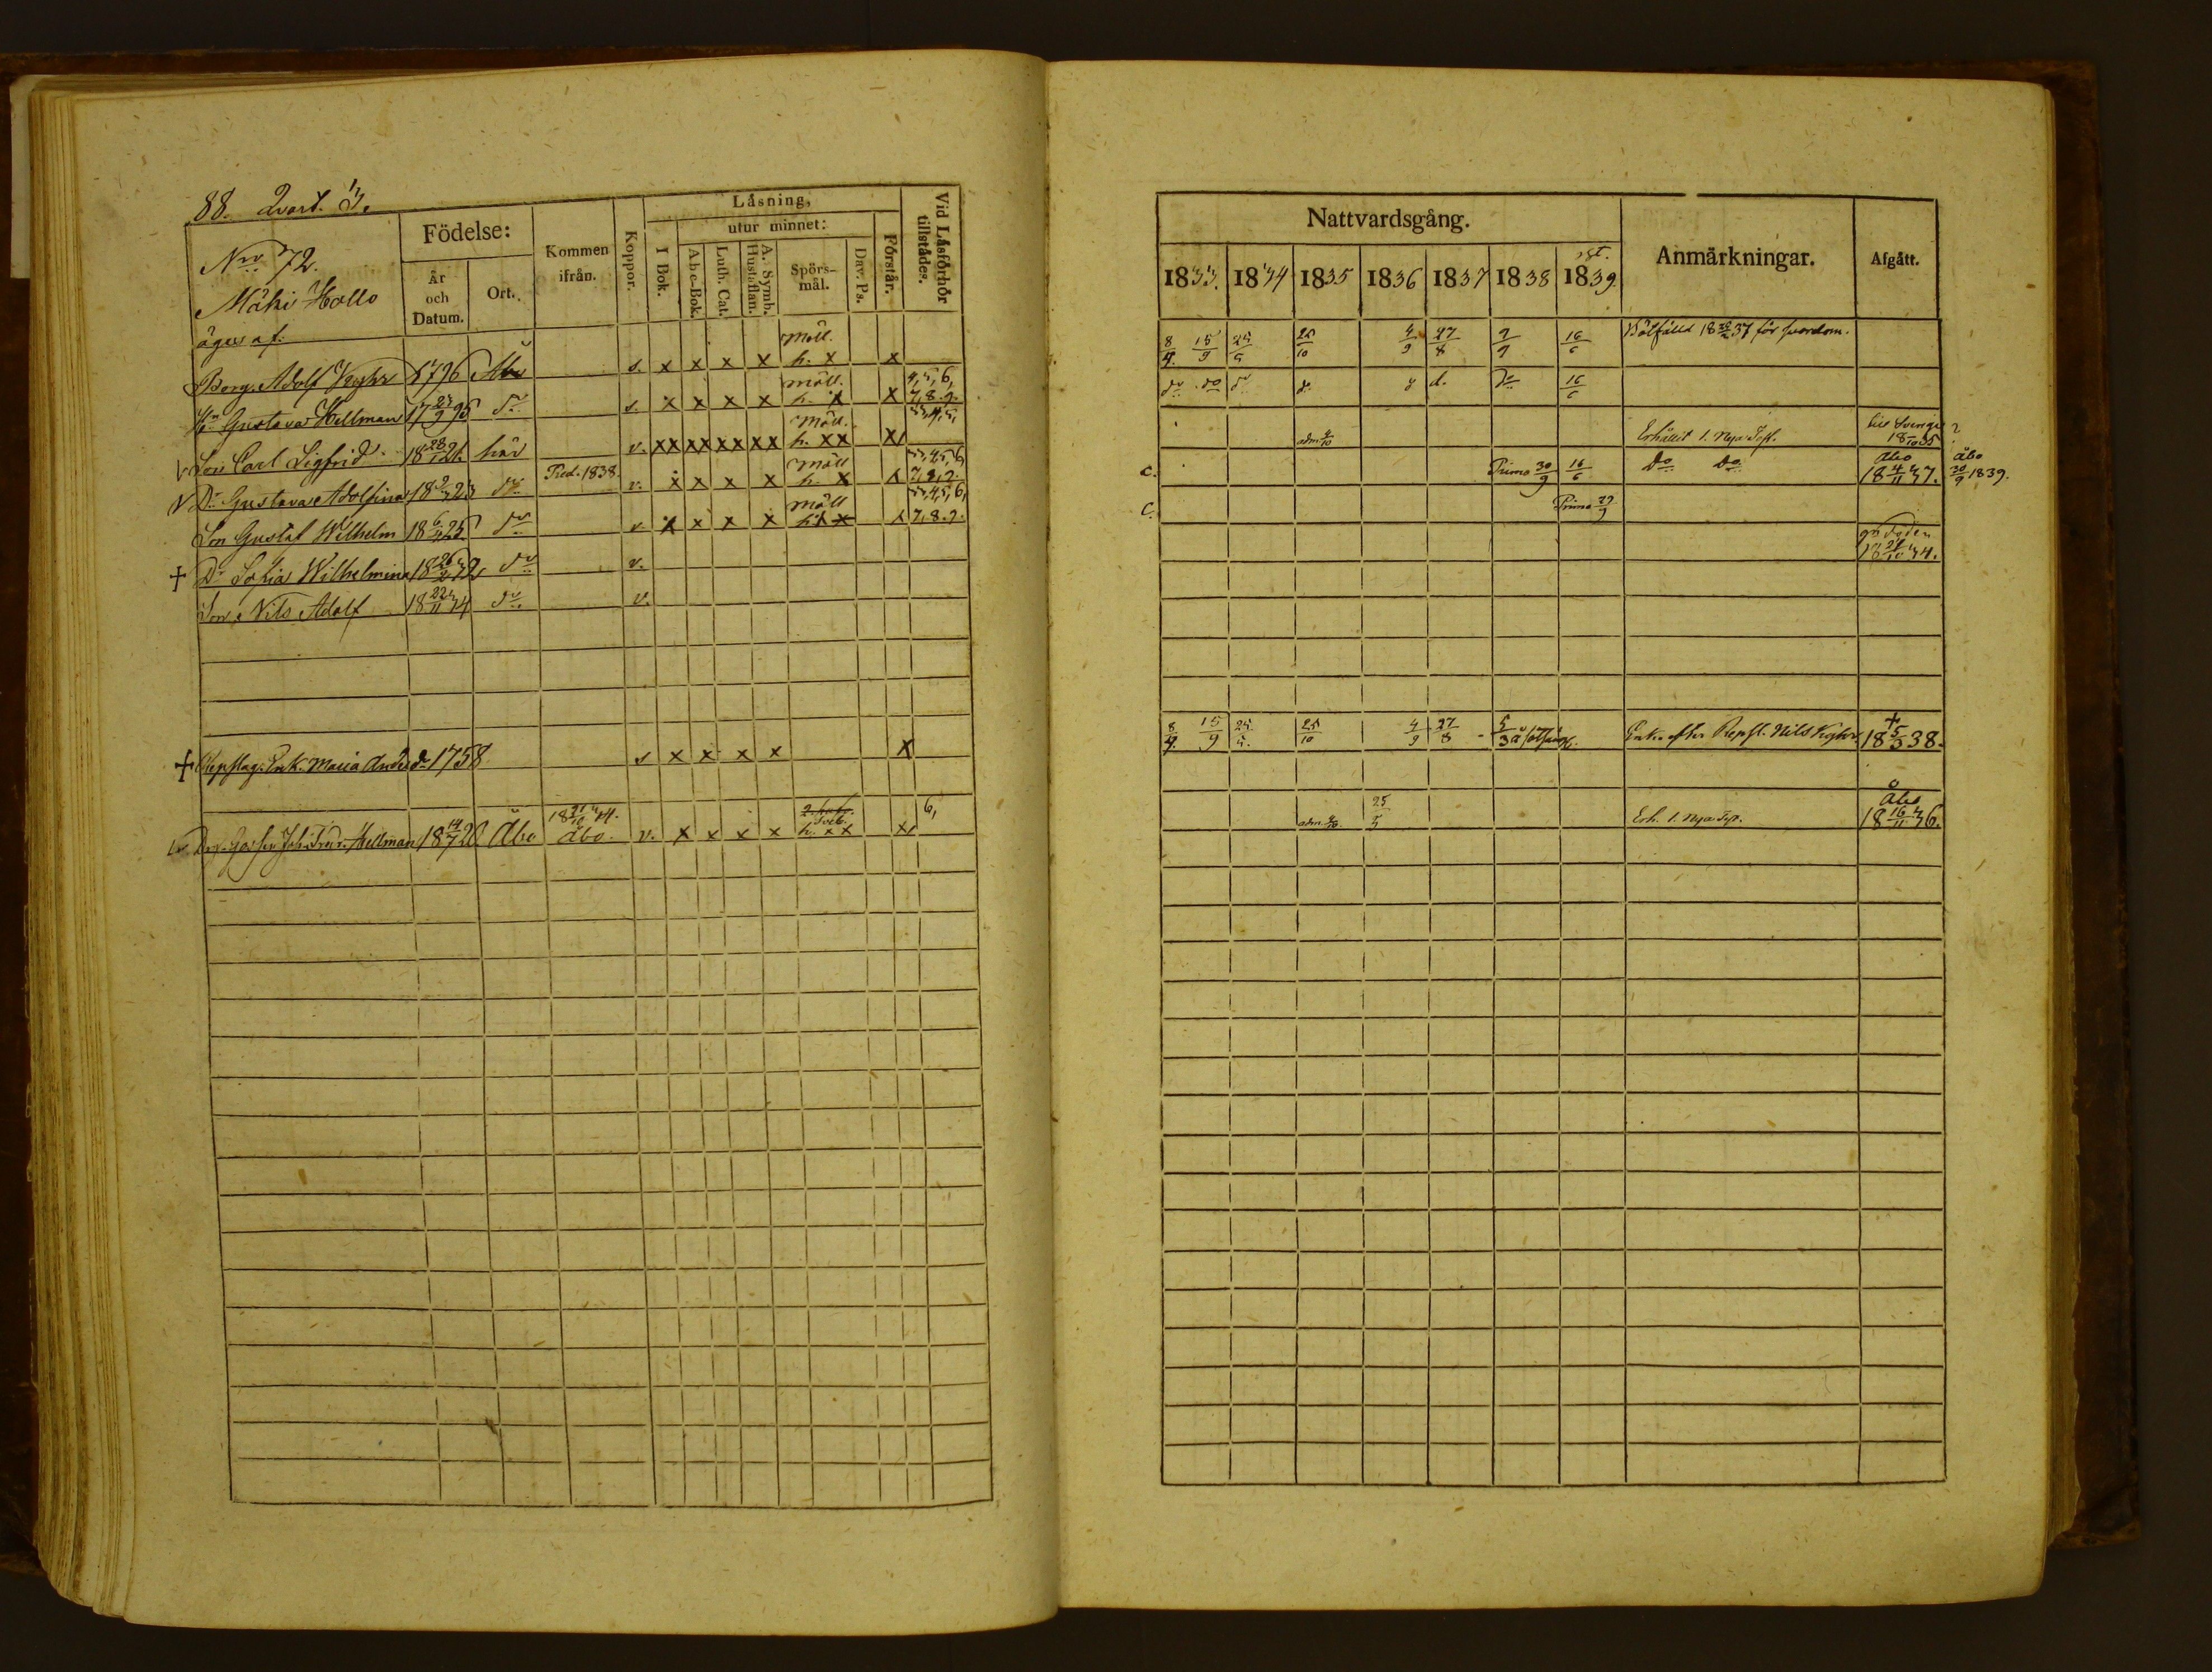 88. Qvart. 3.
Nro 72.
Mähi Hollo
äges af.
Födelse:
År
och
Datum.
Ort.
Kommen
ifrån.
Koppor.
Läsning,
utur minnet:
I Bok.
Abc-Bok.
Luth. Cat.
A. Symb.
Hust.flan.
Spörs-
mål.
Dav. Ps.
Förstår.
Vid Läsförhör
tillstädes.
Borg. Adolf 1796 Åbo s. x x x x möll. h. x x
Gustava Hellman 17 95 do s. x x x x möll. h. x x 4,5,6, 7,8.9.
Son Carl Sigfrid 18 28/1 21 här v. xx xx xx xx möll. h. xx x 3,4,5,
Dr Gustava Adolfina 18 23 do Fred. 1838. v. x x x x möll h. x x 3,4,5,6, 7,8,9.
Son Gustaf Wilhelm 18 6/4 25 do v. x x x x möll x 3,4,5,6, 7,8.9.
† Dr Sofia Wilhelmina 18 26/2 32 do v.
Son Nils Adolf 18 22/11 34 do v.
† Repslag. Enk. Maria Andersdr 1758 s x x x x x
Joh. Fredr. Hellman 18 14/7 20 Åbo 18 21/10 34. Åbo. v. x x x x h. x x x 6,
Nattvardsgång.
1833. 1834 1835 1836 1837 1838 1839
Anmärkningar.
Afgått.
8/4 15/9 25/5 25/10 4/9 27/8 9/9 16/6 18 37 för svordom.
do do do d. d. do 16/6
adm 4/10 Erhållit 1. Nya Test. till Sverige 18 35 ?
C. Primo 30/9 16/6 do do Åbo 18 4/11 37. Åbo 20/9 1839.
C. Primo 29/9
döden
18 34.
8/4 15/9 25/5 25/10 4/9 27/8 5/3 å Enk. efter Repsl. Nils † 18 5/3 38.
adm. 25/5 Erh. 1. Nya Åbo 18 16/11 36.